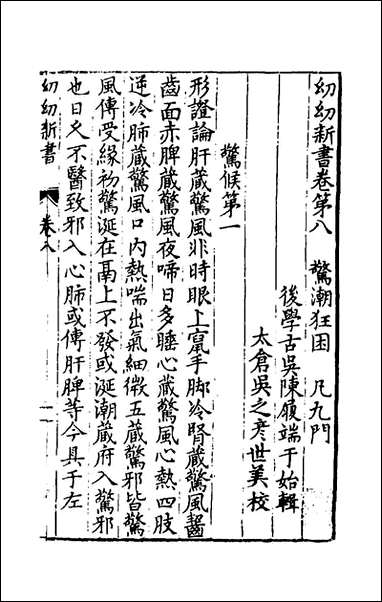 幼幼新書卷第八　驚潮狂困　凡九門
後學古吳陳履端于始輯
太倉吳之彥世美校
驚候第一
形證論肝藏驚風非時眼上竄手脚冷腎藏驚風齧
齒面赤脾藏驚風夜啼日多睡心藏驚風心熱四肢
逆冷肺藏驚風口内熱喘出氣細微五藏驚邪皆驚
風傳受緣初驚涎在鬲上不發或涎潮藏府入驚邪
也日久不醫致邪入心肺或傳肝脾等今具于左
幼幼新書
卷八
一